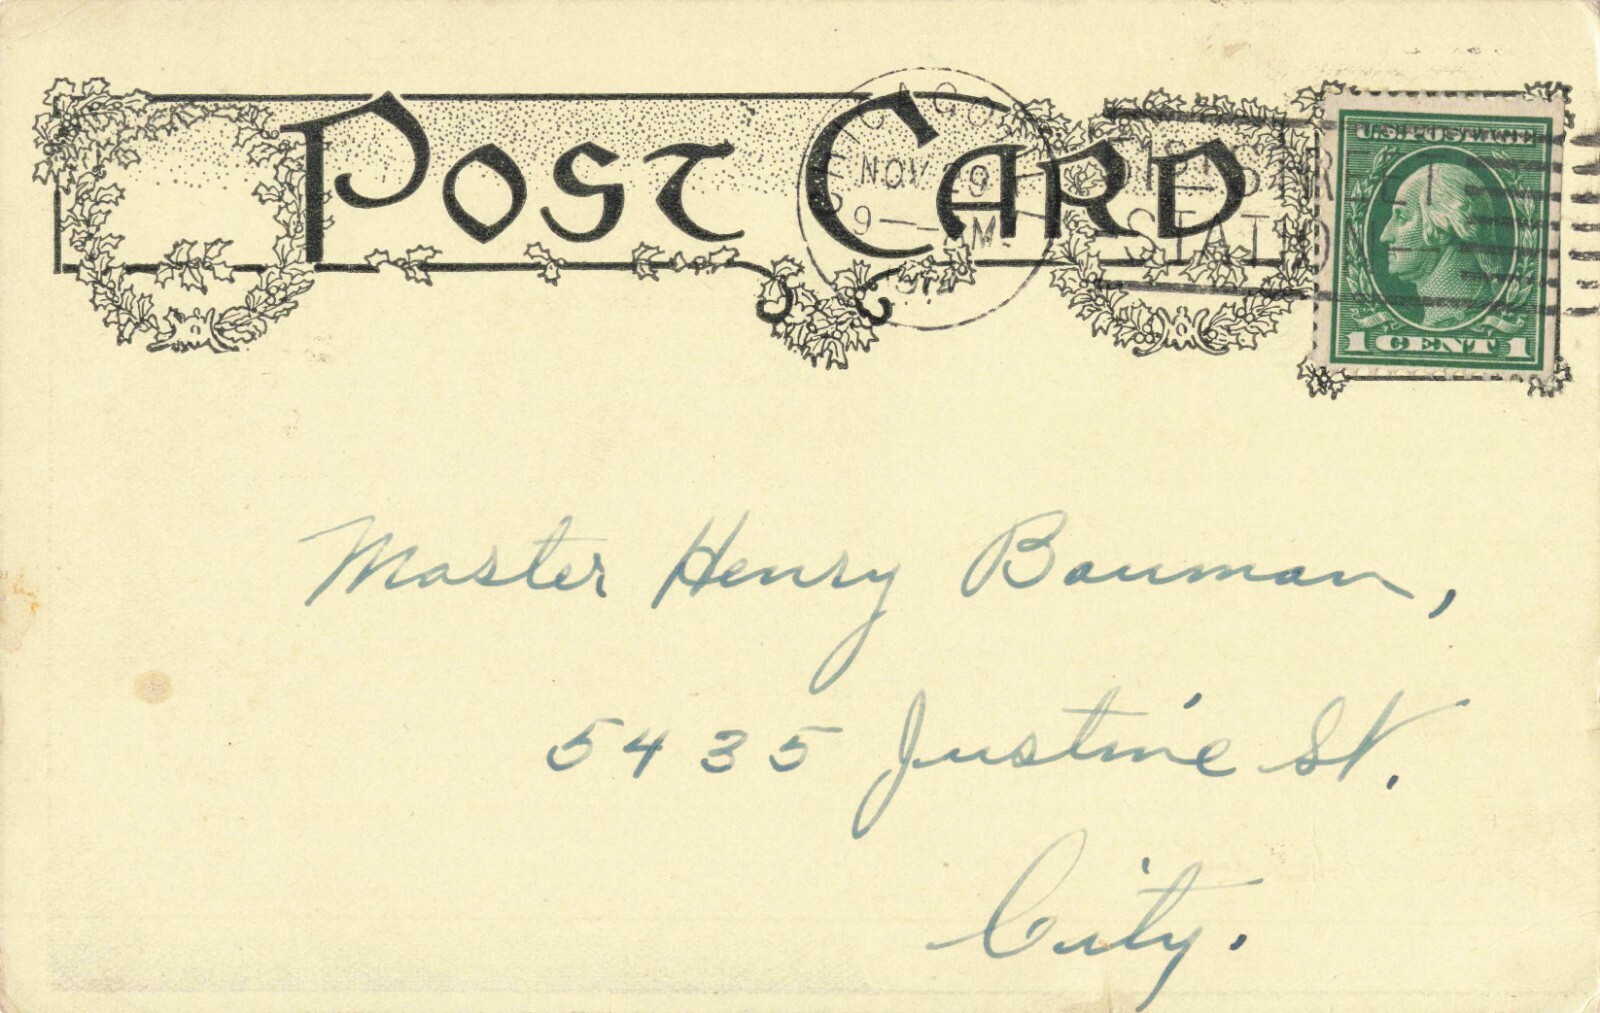 POST CARD
CHICAGO
NOV 9
9 — M.
STATION
U.S. POSTAGE
1 CENT 1
Master Henry Bauman,
5435 Justine St.
City.